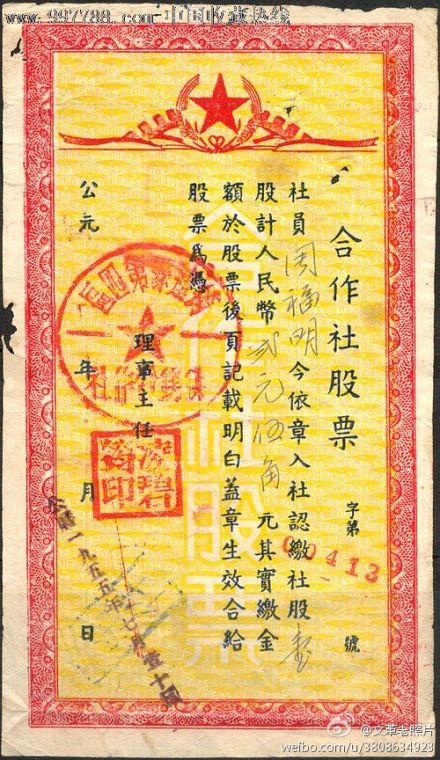 www.997788.com 中国收藏热线
合作社股票
字第00413號
社員周福明今依章入社認繳社股壹
股計人民幣貳元伍角元其實繳金
額於股票後頁記載明白蓋章生效合給
股票爲憑
理事主任
公元 年 月 日
公曆一九五五年
合作社股票
@文革老照片
weibo.com/u/3808634923